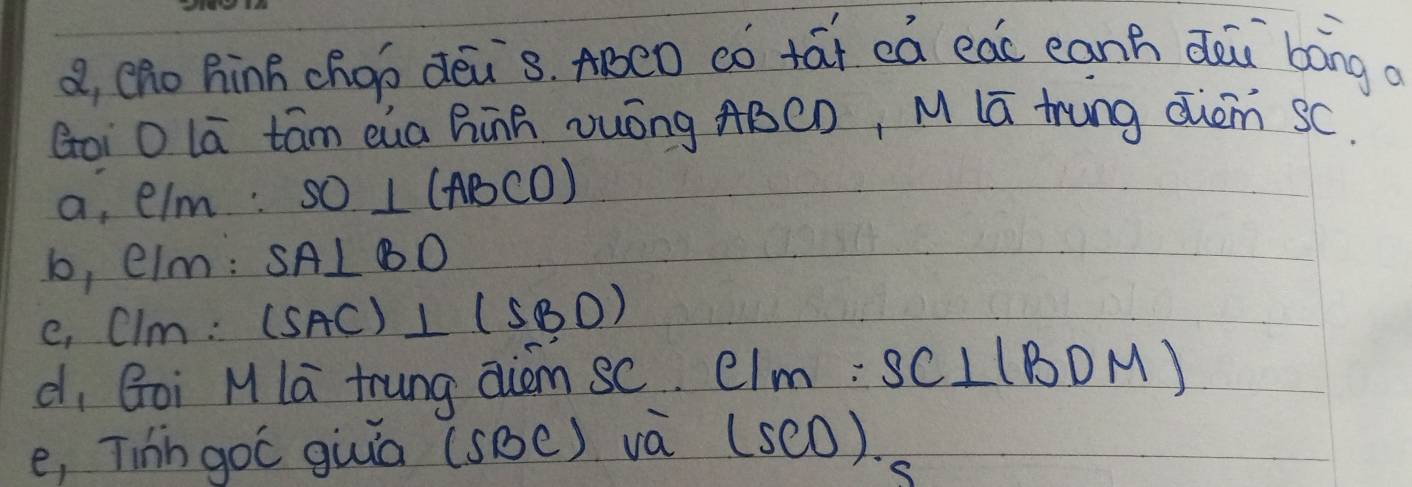 2, Cho hình chóp đều S. ABCD có tất cả các cạnh đều bằng a
Gọi O là tâm của hình vuông ABCD, M là trung điểm SC.
a, c/m : SO ⊥ (ABCD)
b, c/m : SA ⊥ BD
c, C/m : (SAC) ⊥ (SBD)
d, Gọi M là trung điểm SC. c/m : SC ⊥ (BDM)
e, Tính góc giữa (SBC) và (SCD).
S